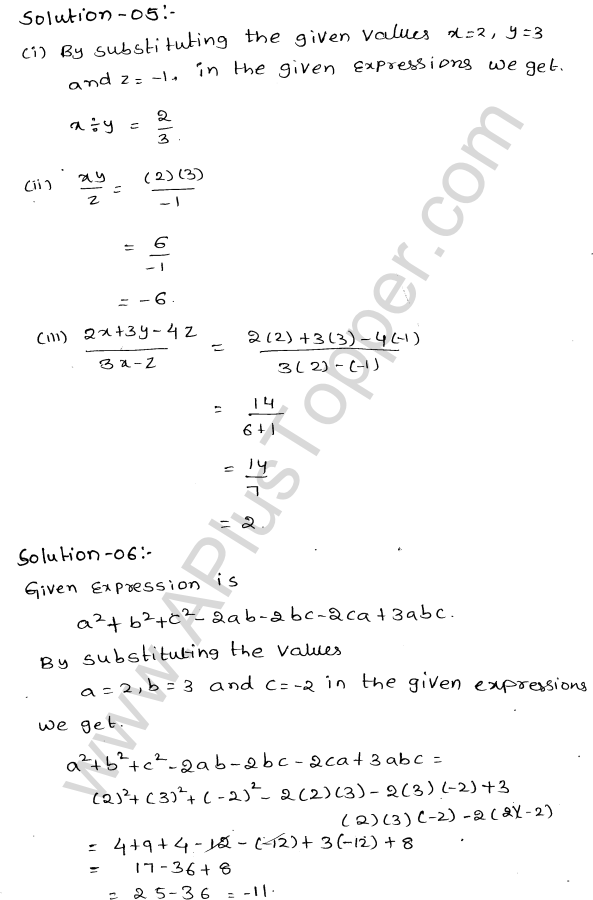 Solution-05:-
(i) By substituting the given values x=2, y=3
and z = -1, in the given expressions we get.
x÷y = 2/3.
(ii) xy/z = (2)(3)/-1
= 6/-1
= -6.
(iii) 2x+3y-4z/3x-z = 2(2)+3(3)-4(-1)/3(2)-(-1)
= 14/6+1
= 14/7
= 2.
Solution-06:-
Given expression is
a²+b²+c²-2ab-2bc-2ca+3abc.
By substituting the values
a=2, b=3 and c=-2 in the given expressions
we get.
a²+b²+c²-2ab-2bc-2ca+3abc =
(2)²+(3)²+(-2)²-2(2)(3)-2(3)(-2)+3
(2)(3)(-2)-2(2)(-2)
= 4+9+4-12-(-12)+3(-12)+8
= 17-36+8
= 25-36 = -11.
www.APlusTopper.com